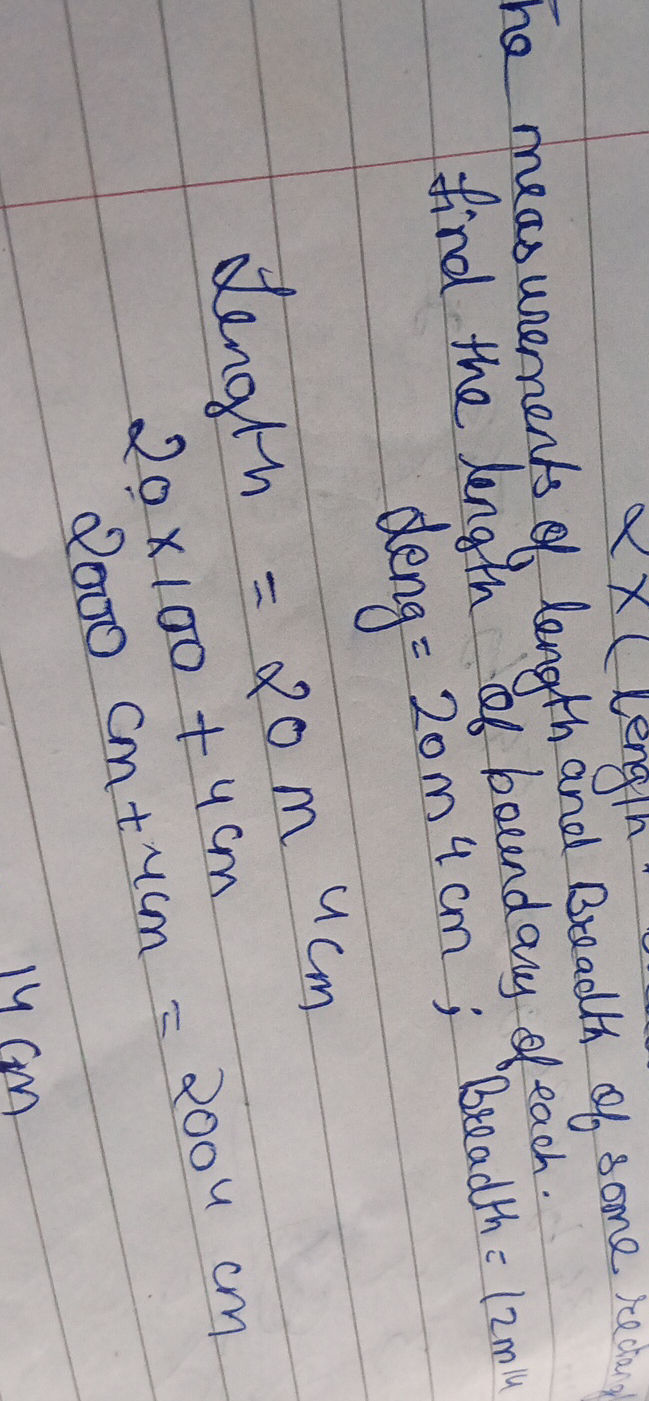 2 X ( length
The measurements of length and Breadth of some rectang
find the length of boundary of each.
Leng = 20m 4cm ; Breadth = 12m 14
Length = 20 m 4cm
20 x 100 + 4cm
2000 cm + 4cm = 2004 cm
14 cm